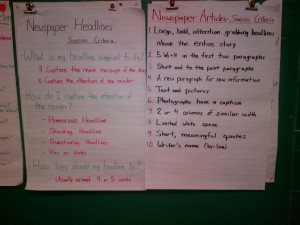 Newspaper Headlines
Success Criteria
What is my headline supposed to do?
Capture the main message of the
Capture the attention of the reader
How do I capture the attention of
the reader?
- Humorous Headline
- Shocking Headline
- Questioning Headline
- Play on words
How long should my headline be?
- Usually around 4 or 5 words
Newspaper Articles - Success Criteria
1. Large, bold, attention grabbing headlines
above the entire story
2. 5 W's in the first two paragraphs
3. Short and to the point paragraphs
4. A new paragraph for new information
5. Text and pictures
6. Photographs have a caption
7. 2 or 4 columns of similar width
8. Limited white space
9. Short, meaningful quotes
10. Writer's name (by-line)